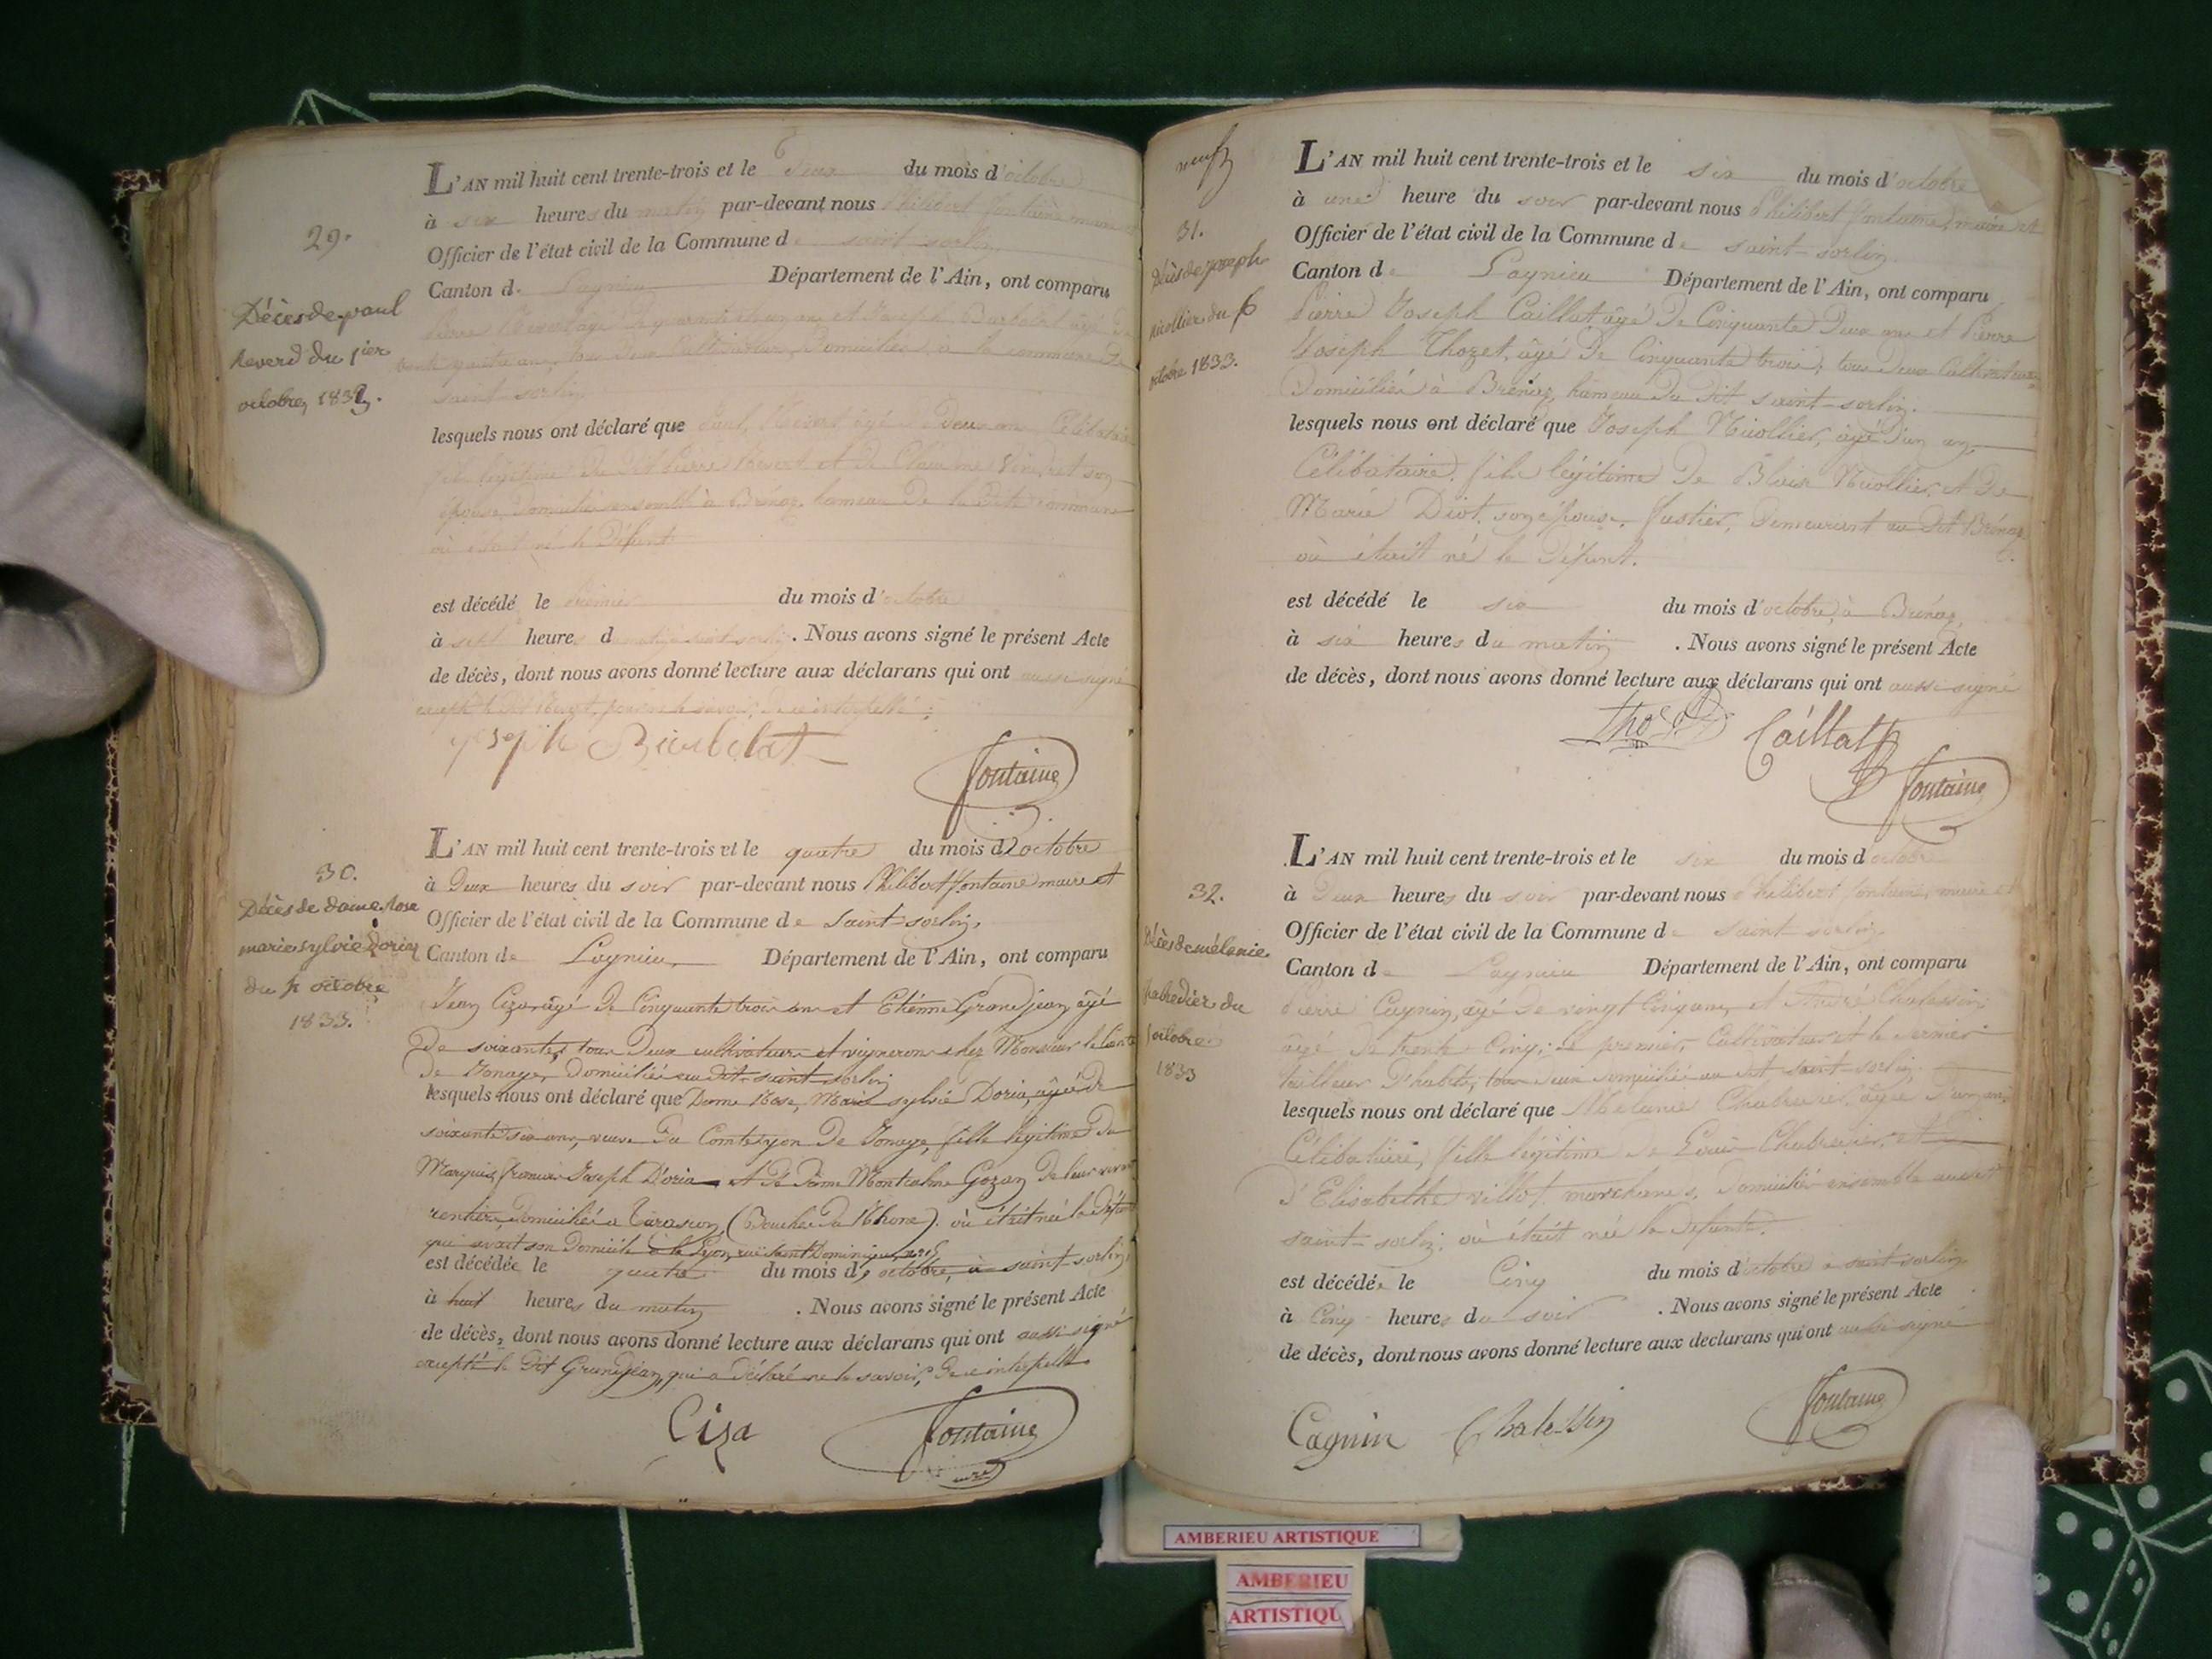 29.
Décès de paul
Reverd du 1ier
octobre, 1833.
L'AN mil huit cent trente-trois et le deux du mois d'octobre
à six heures du matin par-devant nous Philibert fontaine maire et
Officier de l'état civil de la Commune de saint-sorlin
Canton de Lagnieu Département de l'Ain, ont comparu
Pierre Reverd âgé de quarante ans et Joseph Barbelat âgé de
trente quatre ans, tous deux Cultivateurs, Domiciliés à la commune de
saint-sorlin
lesquels nous ont déclaré que Paul Reverd âgé de Deux ans Célibataire
fils légitime du dit Pierre Reverd et de Claudine son
épouse, Domiciliés ensemble à Brénaz, hameau de la dite commune
où était né le Défunt.
est décédé le premier du mois d'octobre
à sept heures du matin à saint-sorlin. Nous avons signé le présent Acte
de décès, dont nous avons donné lecture aux déclarans qui ont aussi signé
excepté le dit Reverd, pour ne le savoir, de ce interpellé.
Joseph Barbelat
fontaine
30.
Décès de dame rose
marie sylvie doria
du 4 octobre
1833.
L'AN mil huit cent trente-trois et le quatre du mois d'octobre
à Deux heures du soir par-devant nous Philibert fontaine maire et
Officier de l'état civil de la Commune de saint-sorlin,
Canton de Lagnieu Département de l'Ain, ont comparu
Jean Ciza âgé de Cinquante trois ans et Etienne Grandjean âgé
De soixante, tous Deux cultivateurs et vignerons chez Monsieur le Comte
de Jonage, Domiciliés au dit saint-sorlin
lesquels nous ont déclaré que Dame Rose, Marie sylvie Doria, âgée de
soixante six ans, veuve du Comte yon De Jonage, fille légitime du
Marquis françois Joseph D'oria et de Dame Montcalm Gozon De leur vivant
rentiers, Domiciliés à Tarascon, (Bouches du Rhone). où était née la défunte
qui avait son Domicile à Lyon, rue saint Dominique, n° 15
est décédée le quatre du mois d'octobre, à saint-sorlin,
à huit heures du matin. Nous avons signé le présent Acte
de décès, dont nous avons donné lecture aux déclarans qui ont aussi signé
excepté le Dit Grandjean, qui a déclaré ne le savoir, De ce interpellé
Ciza
fontaine
neuf
31.
Décès de joseph
nicollier du 6
octobre 1833.
L'AN mil huit cent trente-trois et le six du mois d'octobre
à une heure du soir par-devant nous Philibert fontaine, maire et
Officier de l'état civil de la Commune de saint-sorlin
Canton de Lagnieu Département de l'Ain, ont comparu
Pierre Joseph Caillat âgé De Cinquante Deux ans et Pierre
Joseph Thozet, âgé De Cinquante trois, tous deux Cultivateurs
Domiciliés à Brénaz, hameau du dit saint-sorlin.
lesquels nous ont déclaré que Joseph Nicollier, âgé d'un an,
Célibataire, fils légitime De Blaise Nicollier, et De
Marie Diot, son épouse, fustier, Demeurant au Dit Brénaz
où était né le Défunt.
est décédé le six du mois d'octobre, à Brénaz,
à six heures du matin. Nous avons signé le présent Acte
de décès, dont nous avons donné lecture aux déclarans qui ont aussi signé
Thozet Caillat
fontaine
32.
Décès de mélanie
chabredier du
octobre
1833
L'AN mil huit cent trente-trois et le six du mois d'octobre
à Deux heures du soir par-devant nous Philibert fontaine, maire et
Officier de l'état civil de la Commune de saint-sorlin
Canton de Lagnieu Département de l'Ain, ont comparu
Pierre Cagnin, âgé de vingt Cinq ans, et André Chalessin
âgé de trente Cinq; Le premier, Cultivateur et le dernier
tailleur D'habits, tous deux domiciliés au dit saint-sorlin
lesquels nous ont déclaré que Mélanie âgée d'un an,
Célibataire, fille légitime de Louis et
D'Elisabethe villot, marchands, Domiciliés ensemble au dit
saint-sorlin; où était née la défunte.
est décédée le Cinq du mois d'octobre à saint-sorlin
à Cinq heures du soir. Nous avons signé le présent Acte
de décès, dont nous avons donné lecture aux déclarans qui ont aussi signé
Cagnin Chalessin
fontaine
AMBERIEU ARTISTIQUE
AMBERIEU
ARTISTIQU